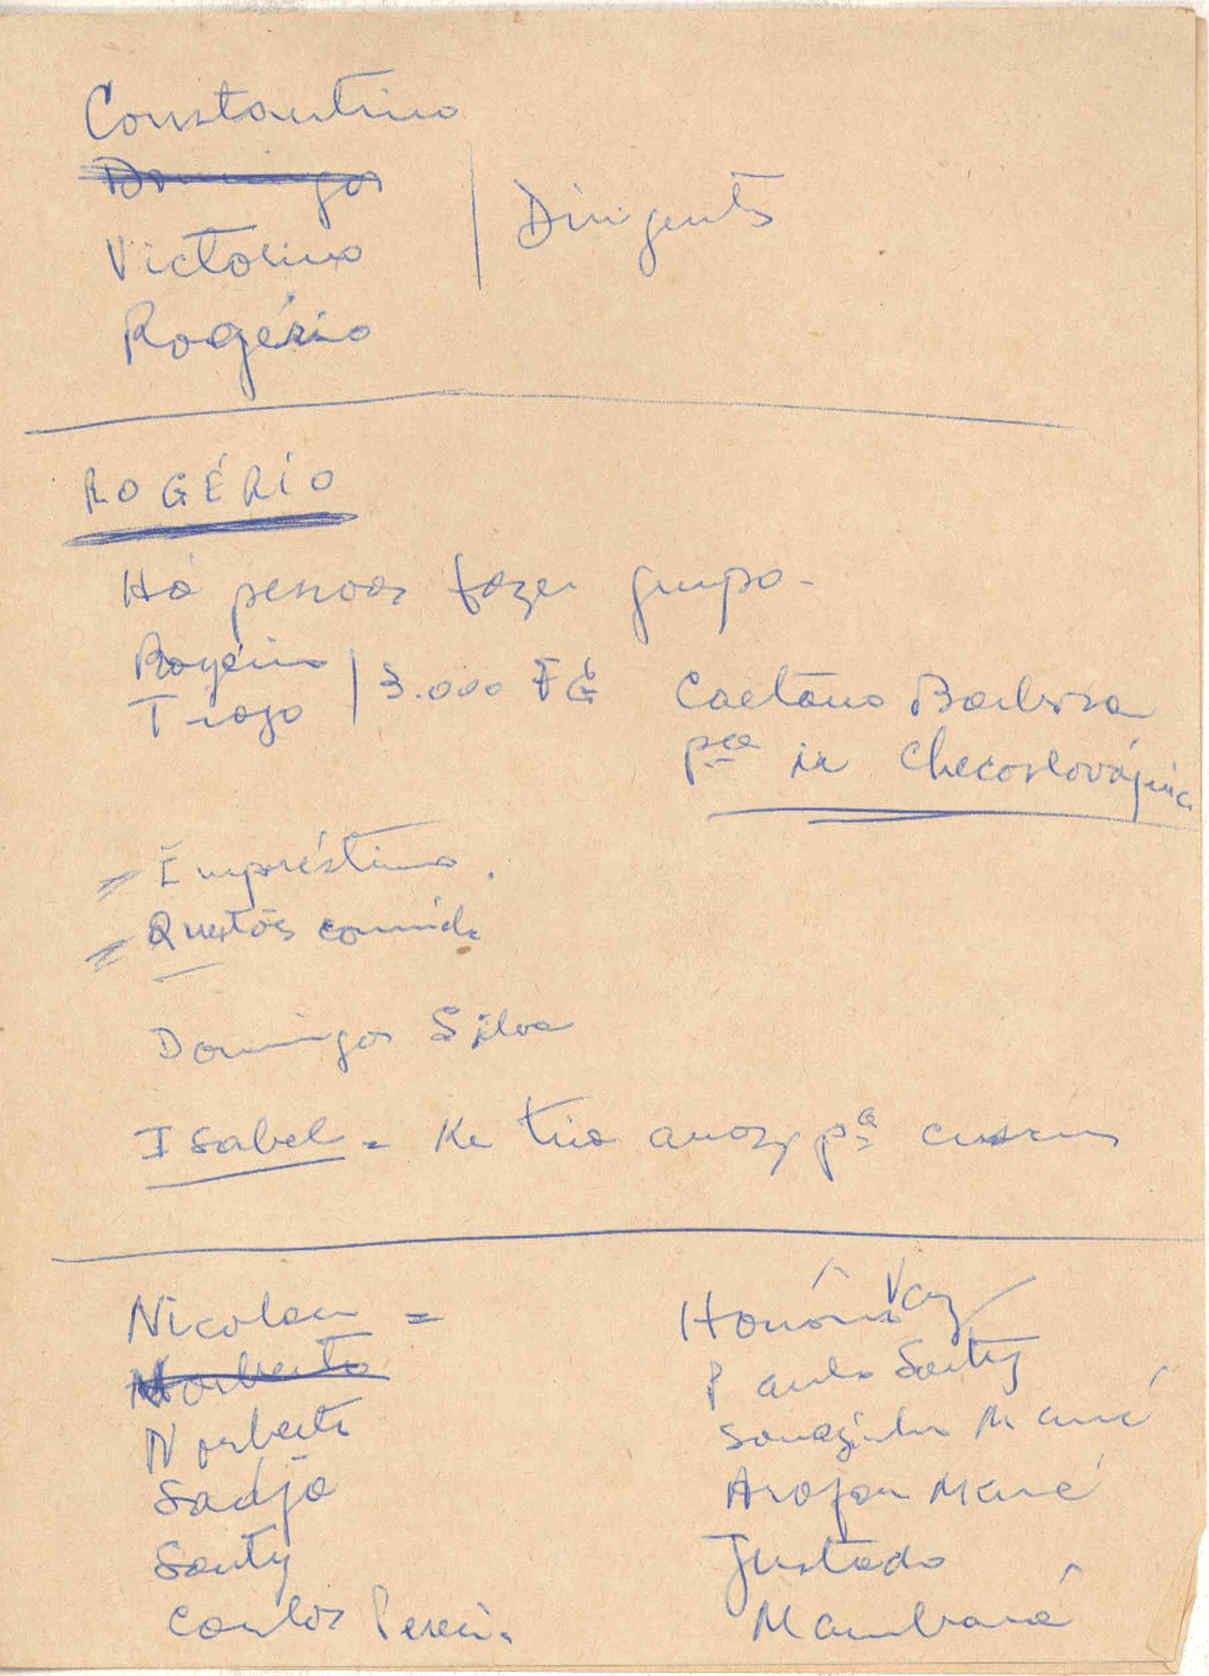 Constantino
Domingos
Victorino
Rogério
Dirigentes
ROGÉRIO
Há pessoas fazer grupo -
Rogério
Tiago
3.000 FG
Caetano Barbosa
pca ir Checoslováquia
= Empréstimo.
= Questões comida
Domingos Silva
Isabel = Ke tira arroz pa
Nicolau =
Norberto
Norberto
Sadjo
Santy
Carlos Pereira
Honório Vaz
Paulo Santy
Mané
Mané
Justado